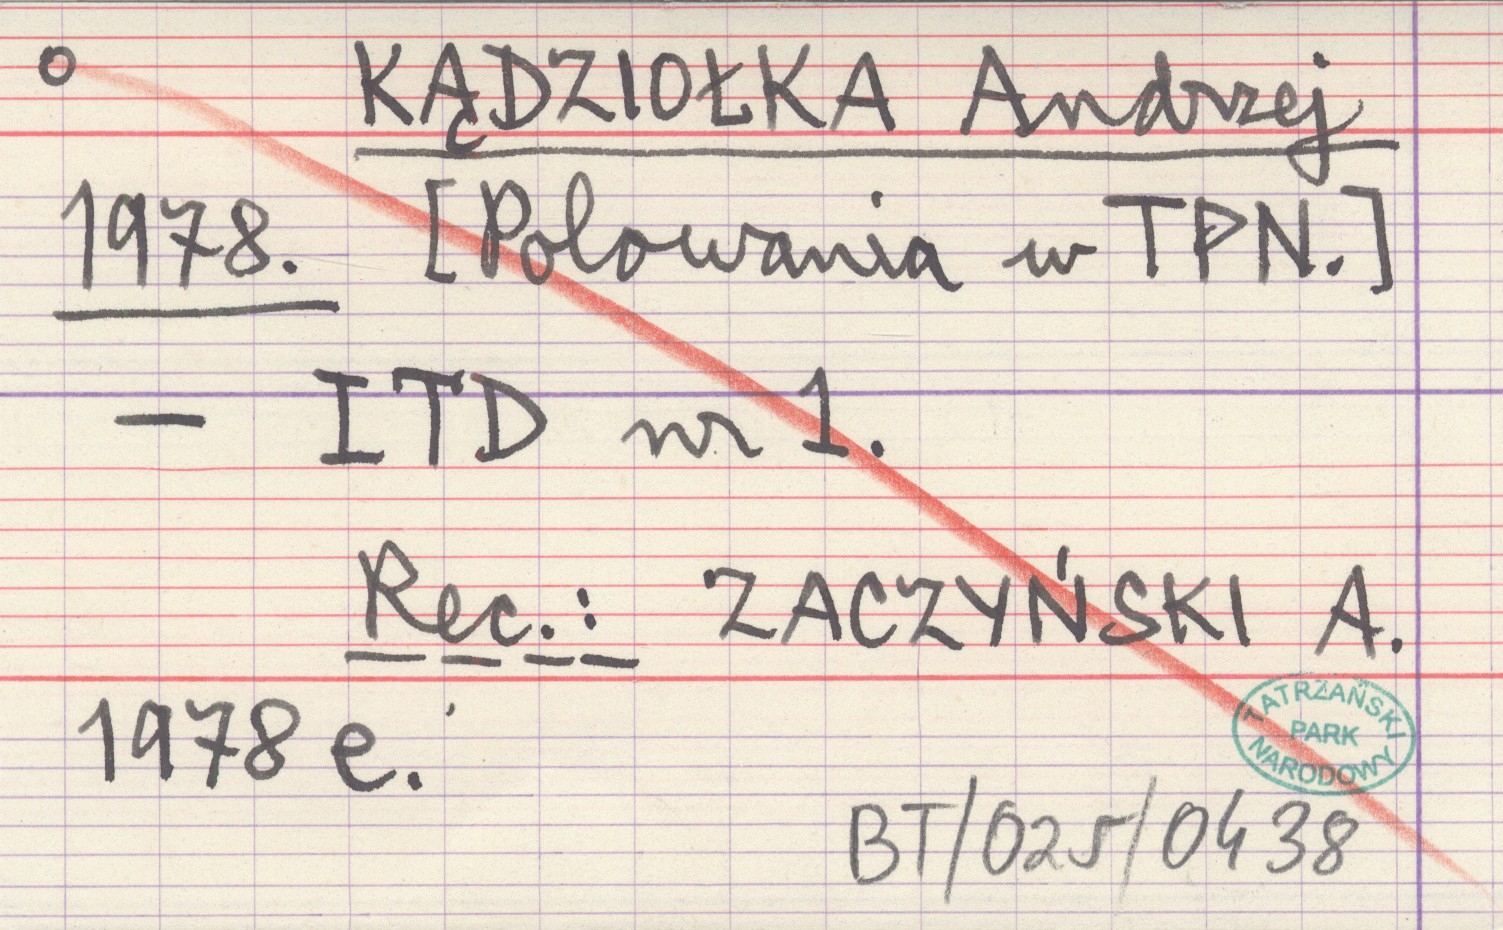 KĄDZIOŁKA Andrzej
1978. [Polowania w TPN.]
— ITD nr 1.
Rec.: ZACZYŃSKI A.
1978 e.
TATRZAŃSKI
PARK
NARODOWY
BT/025/0438